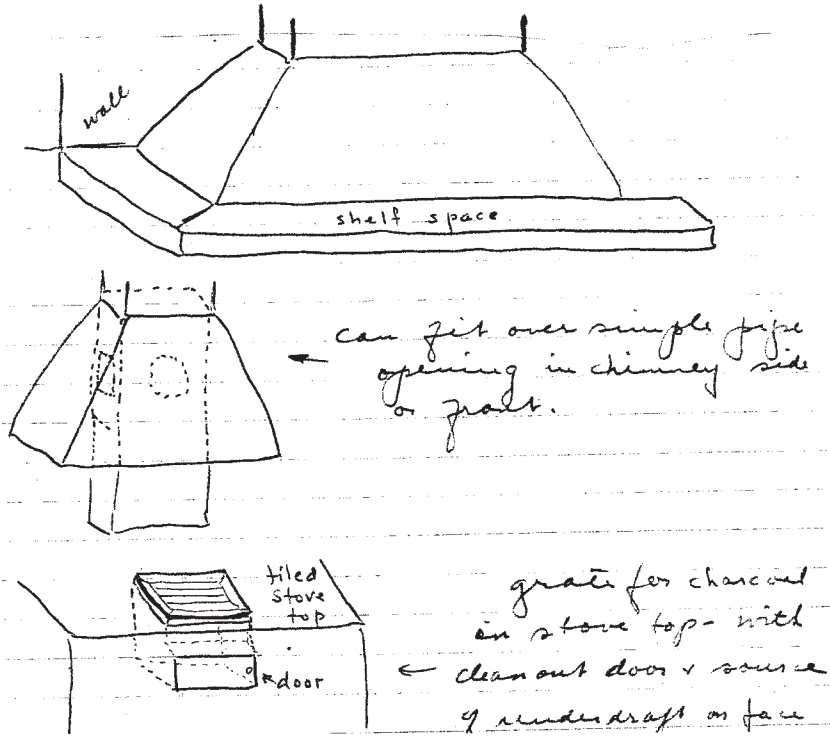 wall
shelf space
can fit over simple pipe
opening in chimney side
or front.
tiled
stove
top
door
grate for charcoal
in stove top - with
cleanout door & source
of underdraft on face